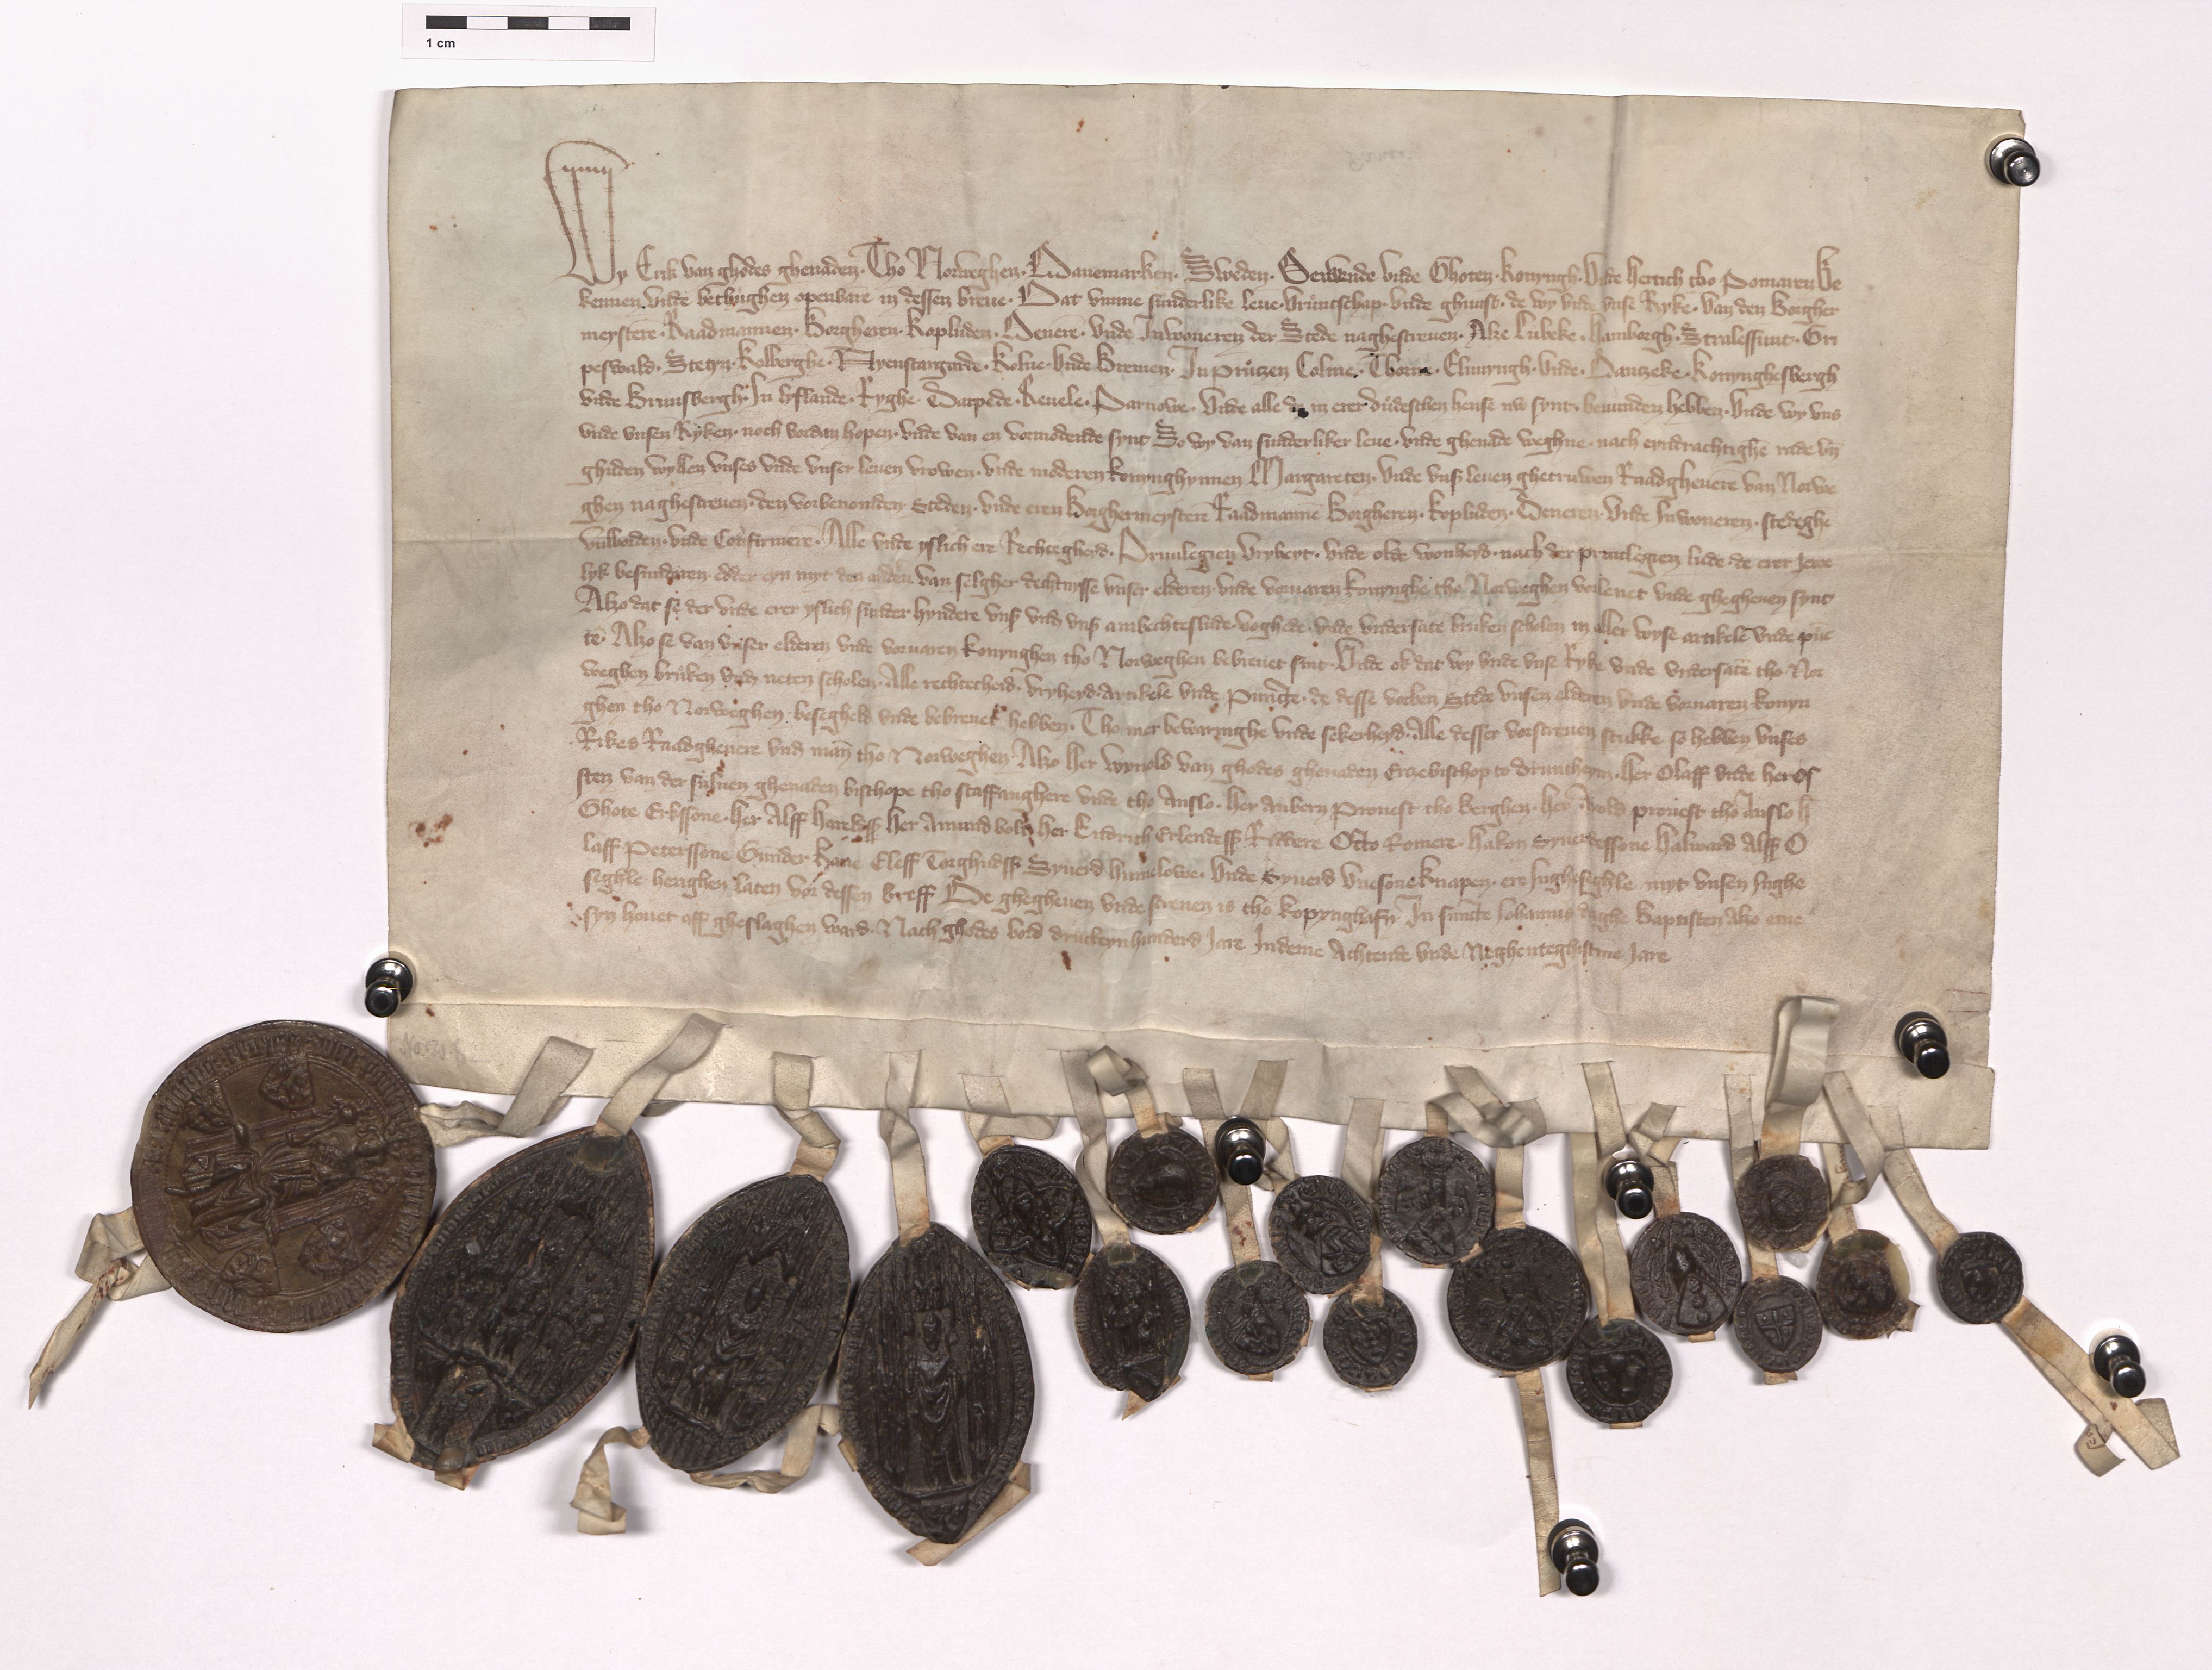 1 cm
Wy Erik van ghodes ghenaden. Tho Norweghen. Danemarken. Sweden. Wende vnde Ghoten. konyngh. Vnde hertich tho Pomaren Be
kennen vnde bethughen openbare in dessen breue. Dat vmme sunderlike leue. vruntschap. vnde ghunst. de wy vnde vnse Ryke. van den Borgher
meystere. Raadmannen. Borgheren. kopluden. Denere. vnde Inwoneren der Stede naghescreuen. Alze Lubeke. Hamborgh. Stralessunt. Gri
peswald. Stetyn. Kolberghe. Nyenstargarde. Kolne. vnde Bremen. In prutzen Colme. Thorun. Eluyngh. vnde. Dantzeke. Konynghesbergh
vnde Brunsbergh. In lyflande. Ryghe. Darpede. Reuele. Parnowe. Vnde alle de in erer dudeschen hense nv synt. beuunden hebben. Vnde wy vns
vnde vnsen Ryken. noch vordan hopen. vnde van en vormodende synt So wy van sunderliker leue. vnde ghenade weghne. nach eyndrachtighe rade vn
ghuden wyllen vnses vnde vnser leuen vrowen. vnde moderen konynghynnen Margareten. vnde vns leuen ghetruwen Raadgheuere van Norwe
ghen naghescreuen. den vorbenomden Steden. vnde eren Borghermeystere Raadmanne Borgheren. kopluden. Deneren. Vnde Inwoneren. stedeghe
vulborden. vnde Confirmere. Alle vnde yslich ere Rechtegheyd. Priuilegien vryheyt. vnde olde wonheyd. nach der priuilegien lude. de erer Jewe
lyk besunderen. edder eyn myt den andern van selgher dechtnisse vnser elderen. vnde voruaren konynghe tho Norweghen vorlenet vnde ghegheuen synt
Alzo dat se der vnde erer yslich sunder hyndere vns vnd vns ambechteslude. voghede. vnde vndersate bruken scholen in aller wyse artikele vnde pun
te. Alzo se van vnser elderen vnde voruaren konynghen tho Norweghen bebreuet sint. Vnde ok dat wy vnde vnse Ryke vnde vndersate tho Nor
weghen bruken vnd neten scholen. Alle rechtecheid. vryheyd. artikele vnde puncte. de desse vorben Stede vnsen elderen vnde voruaren konyn
ghen tho Norweghen. besegheld vnde bebreuet hebben. Tho mer bewaringhe vnde sekerheyd. Alle desser vorscreuen stukke so hebben vnses
Rikes Raadgheuere vnd man tho Norweghen. Alzo Her Wynold van ghodes ghenaden Ertzebischop to druntheym. Her Olaff vnde her Os
sten van der suluen ghenaden bischope tho staffanghere vnde tho Anslo. Her Anbern Prouest tho Berghen. Her Arold prouest tho Anslo H
Ghote Erkssone. Her Alff Hareldess Her Amund bolt her Endrich Erlendess Riddere Otto Romere. Hakon Syuerdessone Halward Alffs O
laff Peterssone Gunder kane Eleff Torghudss Syuerd humelowe. Vnde Syuerd vuesone knapen. ere Inghesighle myt vnsen Inghe
seghle henghen laten vor dessen breff De ghegheuen vnde screuen is tho kopynghafn. In sunte Johannis daghe Baptisten Alzo eme
syn houet aff gheslaghen ward. Nach ghodes bord druteynhunderd Jare Indeme Achtende vnde Neghenteghstme Jare